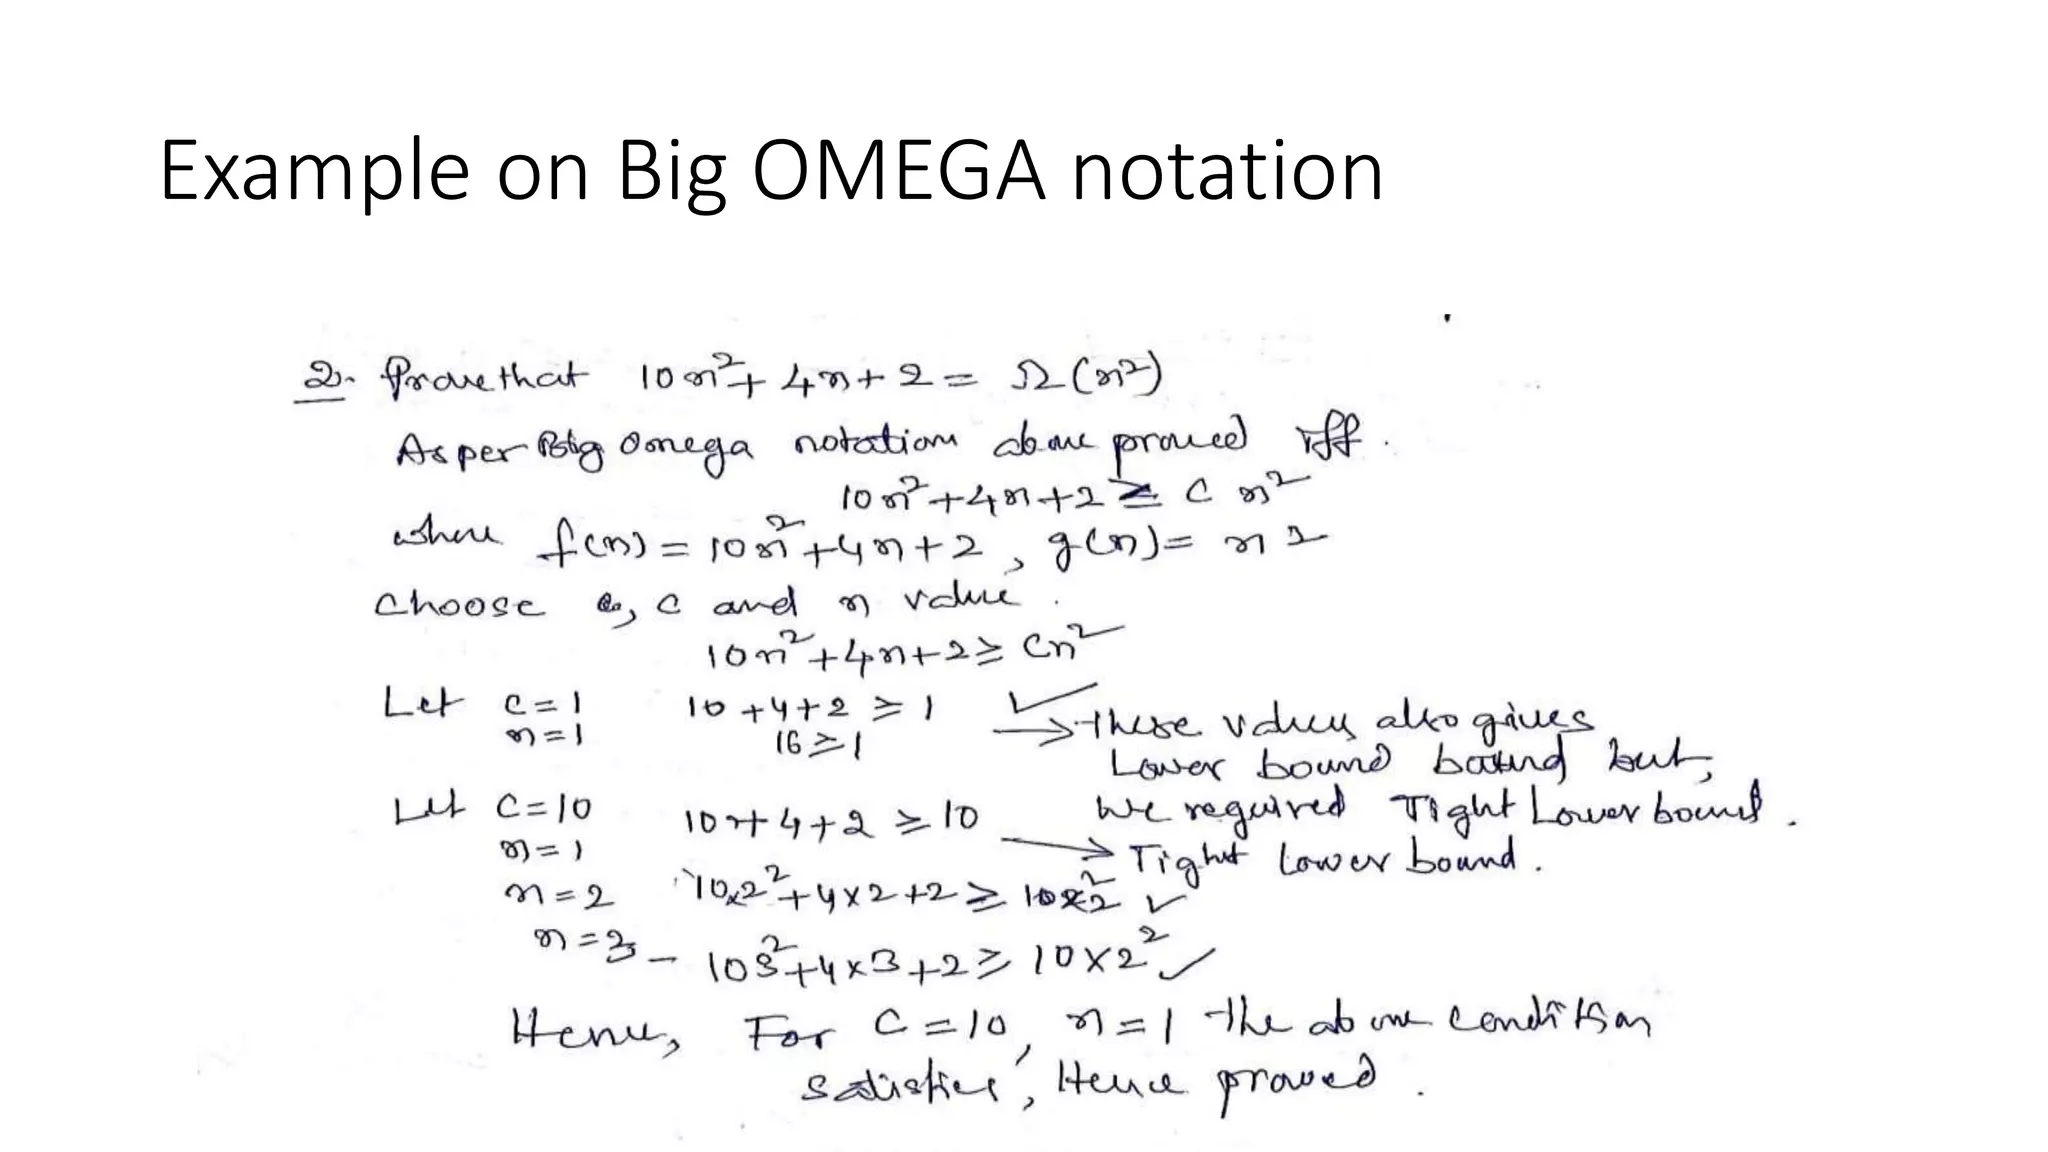 Example on Big OMEGA notation
2. Prove that 10n²+ 4n+2 = Ω(n²)
As per Big Omega notation above proved iff.
10n²+4n+2 ≥ C n²
where f(n) = 10n²+4n+2, g(n) = n²
choose c and n value.
10n²+4n+2 ≥ Cn²
Let C=1 10+4+2 ≥ 1 ✓ → These values also gives
n=1 16≥1
Lower bound but,
Let C=10 10+4+2 ≥ 10 we required Tight Lower bound.
n=1 → Tight Lower bound.
n=2 10×2²+4×2+2 ≥ 10×2² ✓
n=3 – 103²+4×3+2 ≥ 10×2² ✓
Hence, For C=10, n=1 the above condition
satisfies, Hence proved.